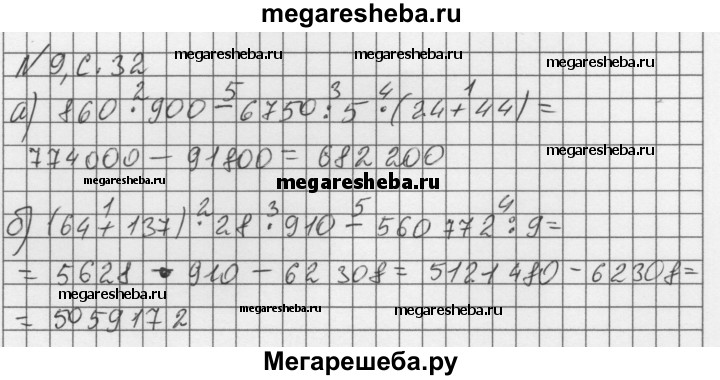 megaresheba.ru
№9, с. 32
megaresheba.ru megaresheba.ru
а) 860 · 900 − 6750 : 5 · (24 + 44) =
2 5 3 4 1
774000 − 91800 = 682 200
megaresheba.ru
megaresheba.ru megaresheba.ru
б) (64 + 137) · 28 · 910 − 560 772 : 9 =
1 2 3 5 4
= 5628 · 910 − 62 308 = 5121 480 − 62308 =
megaresheba.ru
megaresheba.ru megaresheba.ru
= 5059172
Мегарешеба.ру